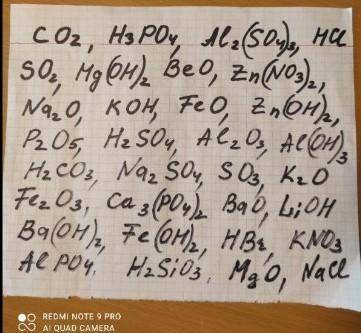 CO2, H3PO4, Al2(SO4)3, HCl
SO2, Mg(OH)2 BeO, Zn(NO3)2,
Na2O, KOH, FeO, Zn(OH)2,
P2O5, H2SO4, Al2O3, Al(OH)3
H2CO3, Na2SO4, SO3, K2O
Fe2O3, Ca3(PO4)2 BaO, LiOH
Ba(OH)2, Fe(OH)2, HBr, KNO3
AlPO4, H2SiO3, MgO, NaCl
REDMI NOTE 9 PRO
AI QUAD CAMERA